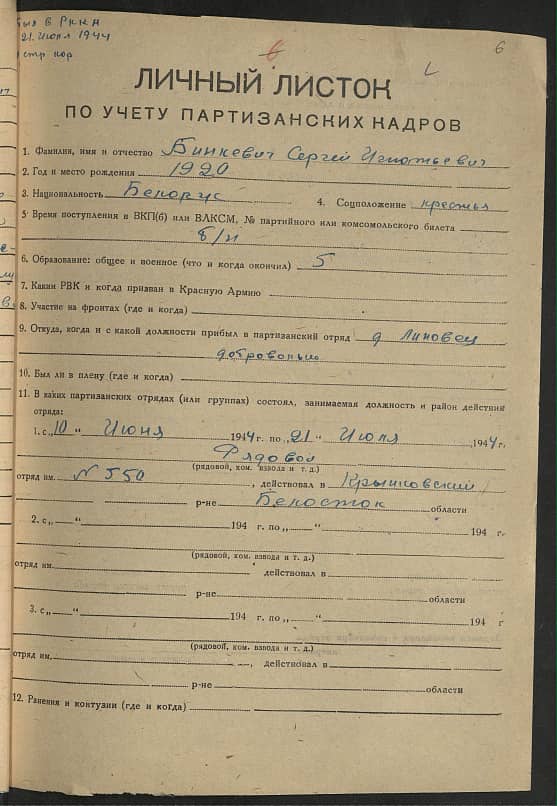 был в РККА
21. Июля 1944
6 6
ЛИЧНЫЙ ЛИСТОК
ПО УЧЕТУ ПАРТИЗАНСКИХ КАДРОВ
1. Фамилия, имя и отчество Бинкевич Сергей Игнатьевич
2. Год и место рождения 1920
3. Национальность Белорус 4. Соцположение крестья
5 Время поступления в ВКП(б) или ВЛКСМ, № партийного или комсомольского билета
б/п
6. Образование: общее и военное (что и когда окончил) 5
7. Каким РВК и когда призван в Красную Армию
8. Участие на фронтах (где и когда)
9. Откуда, когда и с какой должности прибыл в партизанский отряд д Линовец
добровольно
10. Был ли в плену (где и когда)
11. В каких партизанских отрядах (или группах) состоял, занимаемая должность и район действия
отряда:
1. с „10 “ Июня 1944 г. по „21 “ Июля 1944 г.
Рядовой
(рядовой, ком. взвода и т. д.)
отряд им. № 550, действовал в Крынковский
р-не Белосток области
2. с „ “ 194 г. по „ “ 194 г.
(рядовой, ком. взвода и т. д.)
отряд им. действовал в
р-не области
3. с „ “ 194 г. по „ “ 194 г
(рядовой, ком. взвода и т. д.)
отряд им. , действовал в
р-не области
12. Ранения и контузии (где и когда)